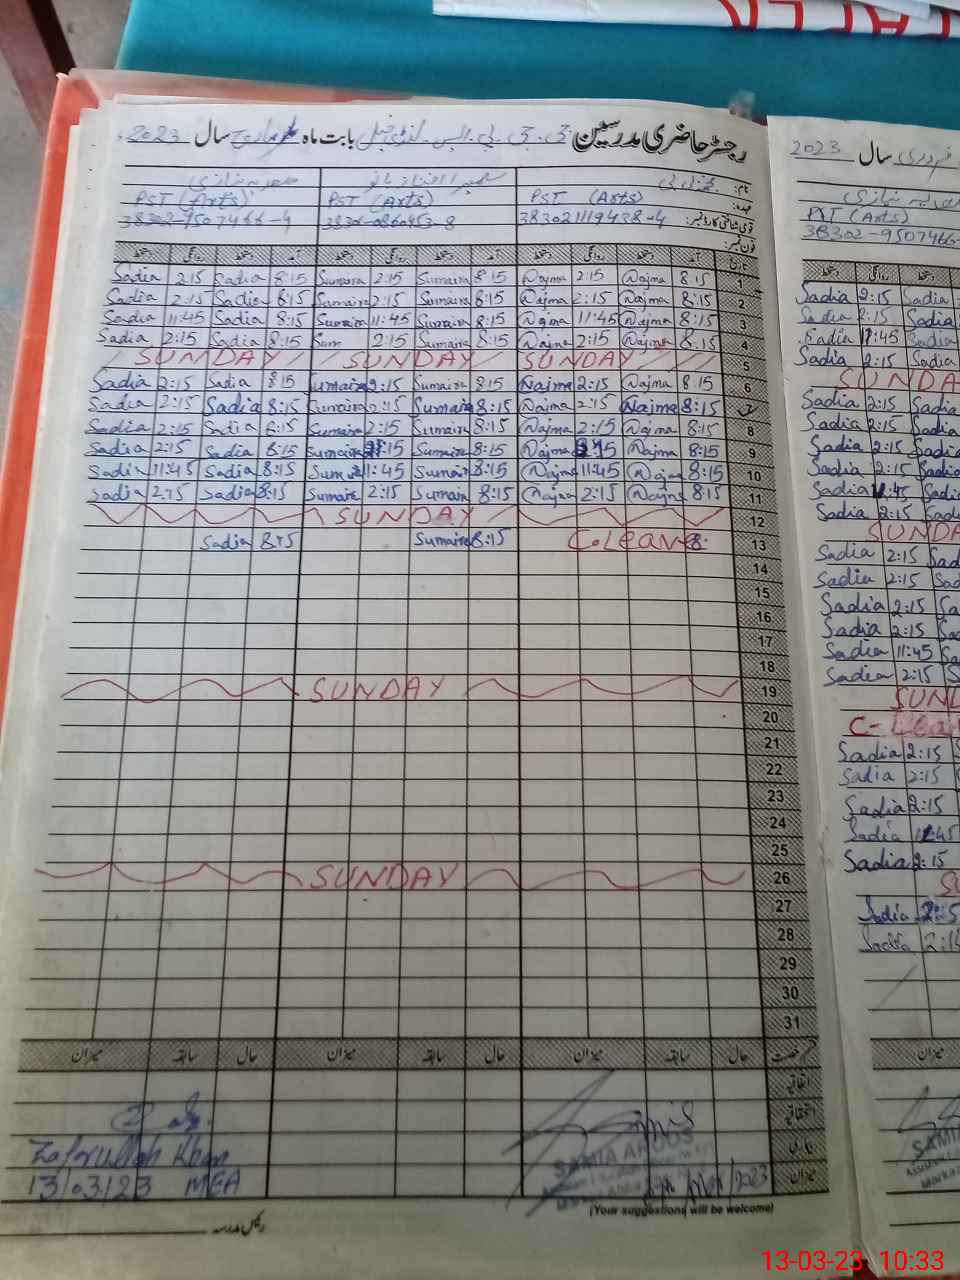 رجسٹر حاضری مدرسین جی۔جی۔پی۔ایس۔ بابت ماہ مارچ سال 2023ء
نام:
عہدہ: PST (Arts) PST (Arts) PST (Arts)
قومی شناختی کارڈ نمبر: 38302-9507466-4
فون نمبر:
تاریخ آمد دستخط روانگی دستخط آمد دستخط روانگی دستخط آمد دستخط روانگی دستخط
Sadia 2:15 Sadia 8:15 Sumaira 2:15 Sumaira 8:15 Najma 2:15 Najma 8:15 1
Sadia 2:15 Sadia 8:15 Sumaira 2:15 Sumaira 8:15 Najma 2:15 Najma 8:15 2
Sadia 11:45 Sadia 8:15 Sumaira 11:45 Sumaira 8:15 Najma 11:45 Najma 8:15 3
Sadia 2:15 Sadia 8:15 Sum 2:15 Sumaira 8:15 Najma 2:15 Najma 8:15 4
SUNDAY SUNDAY SUNDAY 5
Sadia 2:15 Sadia 8:15 Sumaira 2:15 Sumaira 8:15 Najma 2:15 Najma 8:15 6
Sadia 2:15 Sadia 8:15 Sumaira 2:15 Sumaira 8:15 Najma 2:15 Najma 8:15
Sadia 2:15 Sadia 8:15 Sumaira 2:15 Sumaira 8:15 Najma 2:15 Najma 8:15 8
Sadia 2:15 Sadia 8:15 Sumaira 2:15 Sumaira 8:15 Najma 2:15 Najma 8:15 9
Sadia 11:45 Sadia 8:15 Sumaira 11:45 Sumaira 8:15 Najma 11:45 Najma 8:15 10
Sadia 2:15 Sadia 8:15 Sumaira 2:15 Sumaira 8:15 Najma 2:15 Najma 8:15 11
SUNDAY 12
Sadia 8:15 Sumaira 8:15 C.Leave 8: 13
14
15
16
17
18
SUNDAY 19
20
21
22
23
24
25
SUNDAY 26
27
28
29
30
31
قسم رخصت حال سابقہ میزان حال سابقہ میزان حال سابقہ میزان
اتفاقیہ
استحقاقیہ
بیماری
میزان
Zafarullah Khan
13/03/23 MEA
SAMIA AROOS
(Your suggestions will be welcome)
رئیس مدرسہ
فروری سال 2023
PST (Arts)
38302-9507466-
دستخط روانگی دستخط
Sadia 2:15 Sadia
Sadia 2:15 Sadia
Sadia 11:45 Sadia
Sadia 2:15 Sadia
SUNDA
Sadia 2:15 Sadia
Sadia 2:15 Sadia
Sadia 2:15 Sadia
Sadia 2:15 Sadia
Sadia 11:45 Sadia
Sadia 2:15 Sadia
SUNDA
Sadia 2:15 Sad
Sadia 2:15 Sad
Sadia 2:15 Sa
Sadia 2:15 Sad
Sadia 11:45 Sa
Sadia 2:15 S
SUND
C-Lea
Sadia 2:15 S
Sadia 2:15
Sadia 2:15
Sadia 11:45
Sadia 2:15
SU
Sadia 2:15
Sadia 2:15
میزان
SAMIA
13-03-23 10:33